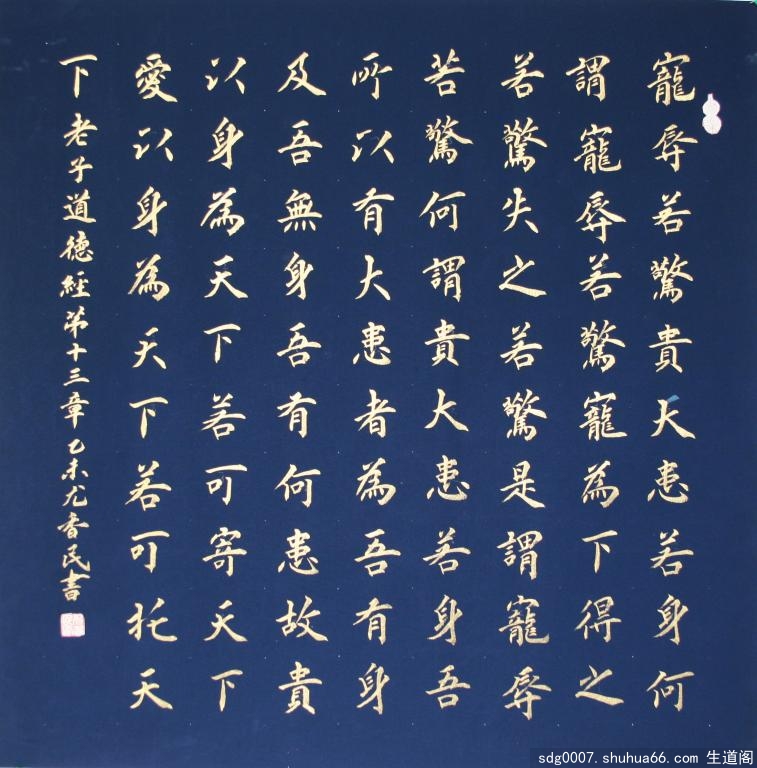 寵辱若驚貴大患若身何
謂寵辱若驚寵為下得之
若驚失之若驚是謂寵辱
若驚何謂貴大患若身吾
所以有大患者為吾有身
及吾無身吾有何患故貴
以身為天下若可寄天下
愛以身為天下若可托天
下老子道德經第十三章乙未尤香民書
sdg0007.shuhua66.com 生道阁